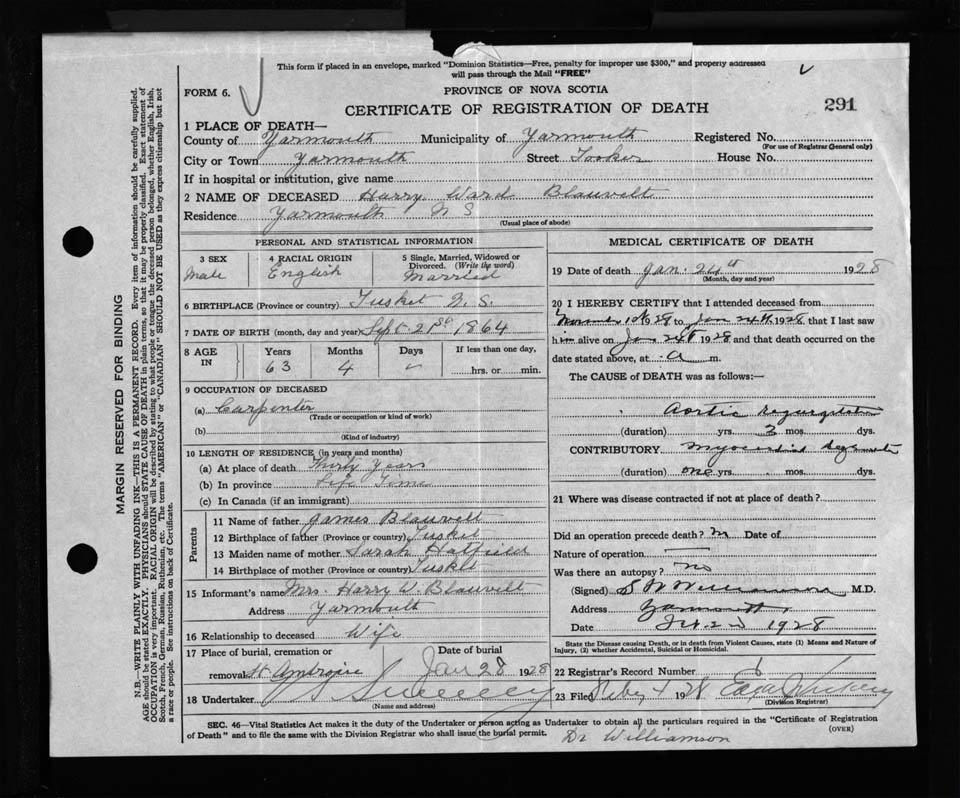 This form if placed in an envelope, marked "Dominion Statistics—Free, penalty for improper use $300," and property addressed
will pass through the Mail "FREE"
FORM 6.
PROVINCE OF NOVA SCOTIA
CERTIFICATE OF REGISTRATION OF DEATH
291
1 PLACE OF DEATH—
County of Yarmouth Municipality of Yarmouth Registered No.
(For use of Registrar General only)
City or Town Yarmouth Street Tooker House No.
If in hospital or institution, give name
2 NAME OF DECEASED Harry Ward Blauvelt
Residence Yarmouth N S
(Usual place of abode)
PERSONAL AND STATISTICAL INFORMATION
3 SEX
Male
4 RACIAL ORIGIN
English
5 Single, Married, Widowed or
Divorced. (Write the word)
Married
6 BIRTHPLACE (Province or country) Tusket N. S.
7 DATE OF BIRTH (month, day and year) Sept 21st 1864
8 AGE IN
Years Months Days If less than one day,
63 4 hrs. or min.
9 OCCUPATION OF DECEASED
(a) Carpenter
(Trade or occupation or kind of work)
(b)
(Kind of industry)
10 LENGTH OF RESIDENCE (in years and months)
(a) At place of death Thirty Years
(b) In province Life Time
(c) In Canada (if an immigrant)
Parents
11 Name of father James Blauvelt
12 Birthplace of father (Province or country) Tusket
13 Maiden name of mother Sarah Hatfield
14 Birthplace of mother (Province or country) Tusket
15 Informant's name Mrs. Harry W. Blauvelt
Address Yarmouth
16 Relationship to deceased Wife
17 Place of burial, cremation or Date of burial
removal St Ambroise Jan 28 1928
18 Undertaker Sweeney
(Name and address)
MEDICAL CERTIFICATE OF DEATH
19 Date of death Jan. 24th 1928
(Month, day and year)
20 I HEREBY CERTIFY that I attended deceased from
to Jan 24th 1928 that I last saw
him alive on Jan 24th 1928 and that death occurred on the
date stated above, at a m.
The CAUSE of DEATH was as follows:—
Aortic regurgitation
(duration) yrs. 3 mos. dys.
CONTRIBUTORY
(duration) one yrs. mos. dys.
21 Where was disease contracted if not at place of death?
Did an operation precede death? Date of
Nature of operation
Was there an autopsy? No
(Signed) Williamson M.D.
Address Yarmouth
Date 1928
State the Disease causing Death, or in death from Violent Causes, state (1) Means and Nature of
Injury, (2) whether Accidental, Suicidal or Homicidal.
22 Registrar's Record Number
23 Filed 4 1928
(Division Registrar)
SEC. 46—Vital Statistics Act makes it the duty of the Undertaker or person acting as Undertaker to obtain all the particulars required in the "Certificate of Registration
of Death" and to file the same with the Division Registrar who shall issue the burial permit.
(OVER)
Dr Williamson
MARGIN RESERVED FOR BINDING
N.B.—WRITE PLAINLY WITH UNFADING INK—THIS IS A PERMANENT RECORD. Every item of information should be carefully supplied.
AGE should be stated EXACTLY. PHYSICIANS should STATE CAUSE OF DEATH in plain terms, so that it may be properly classified. Exact statement of
OCCUPATION is very important. RACIAL ORIGIN will be described by stating to what people or tongue the deceased person belonged, whether English, Irish,
Scotch, French, German, Russian, Ruthenian, etc. The terms "AMERICAN" or "CANADIAN" SHOULD NOT BE USED as they express citizenship but not
a race or people. See instructions on back of Certificate.